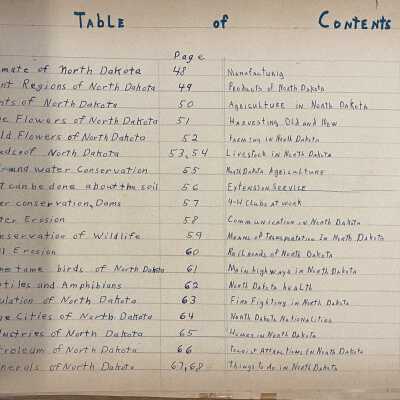 Table of Contents
Page
mate of North Dakota 48 Manufacturing
nt Regions of North Dakota 49 Products of North Dakota
nts of North Dakota 50 Agriculture in North Dakota
e Flowers of North Dakota 51 Harvesting Old and New
ld Flowers of North Dakota 52 Farming in North Dakota
eds of North Dakota 53,54 Livestock in North Dakota
and Water Conservation 55 North Dakota Agriculture
t can be done about the soil 56 Extension Service
er conservation, Dams 57 4-H Clubs at work
ter Erosion 58 Communication in North Dakota
eservation of Wildlife 59 Means of Transportation in North Dakota
l Erosion 60 Railroads of North Dakota
me tame birds of North Dakota 61 Main highways in North Dakota
tiles and Amphibians 62 North Dakota health
ulation of North Dakota 63 Fire Fighting in North Dakota
ge Cities of North Dakota 64 North Dakota Nationalities
ustries of North Dakota 65 Homes in North Dakota
troleum of North Dakota 66 Tourist Attractions in North Dakota
nerals of North Dakota 67,68 Things to do in North Dakota